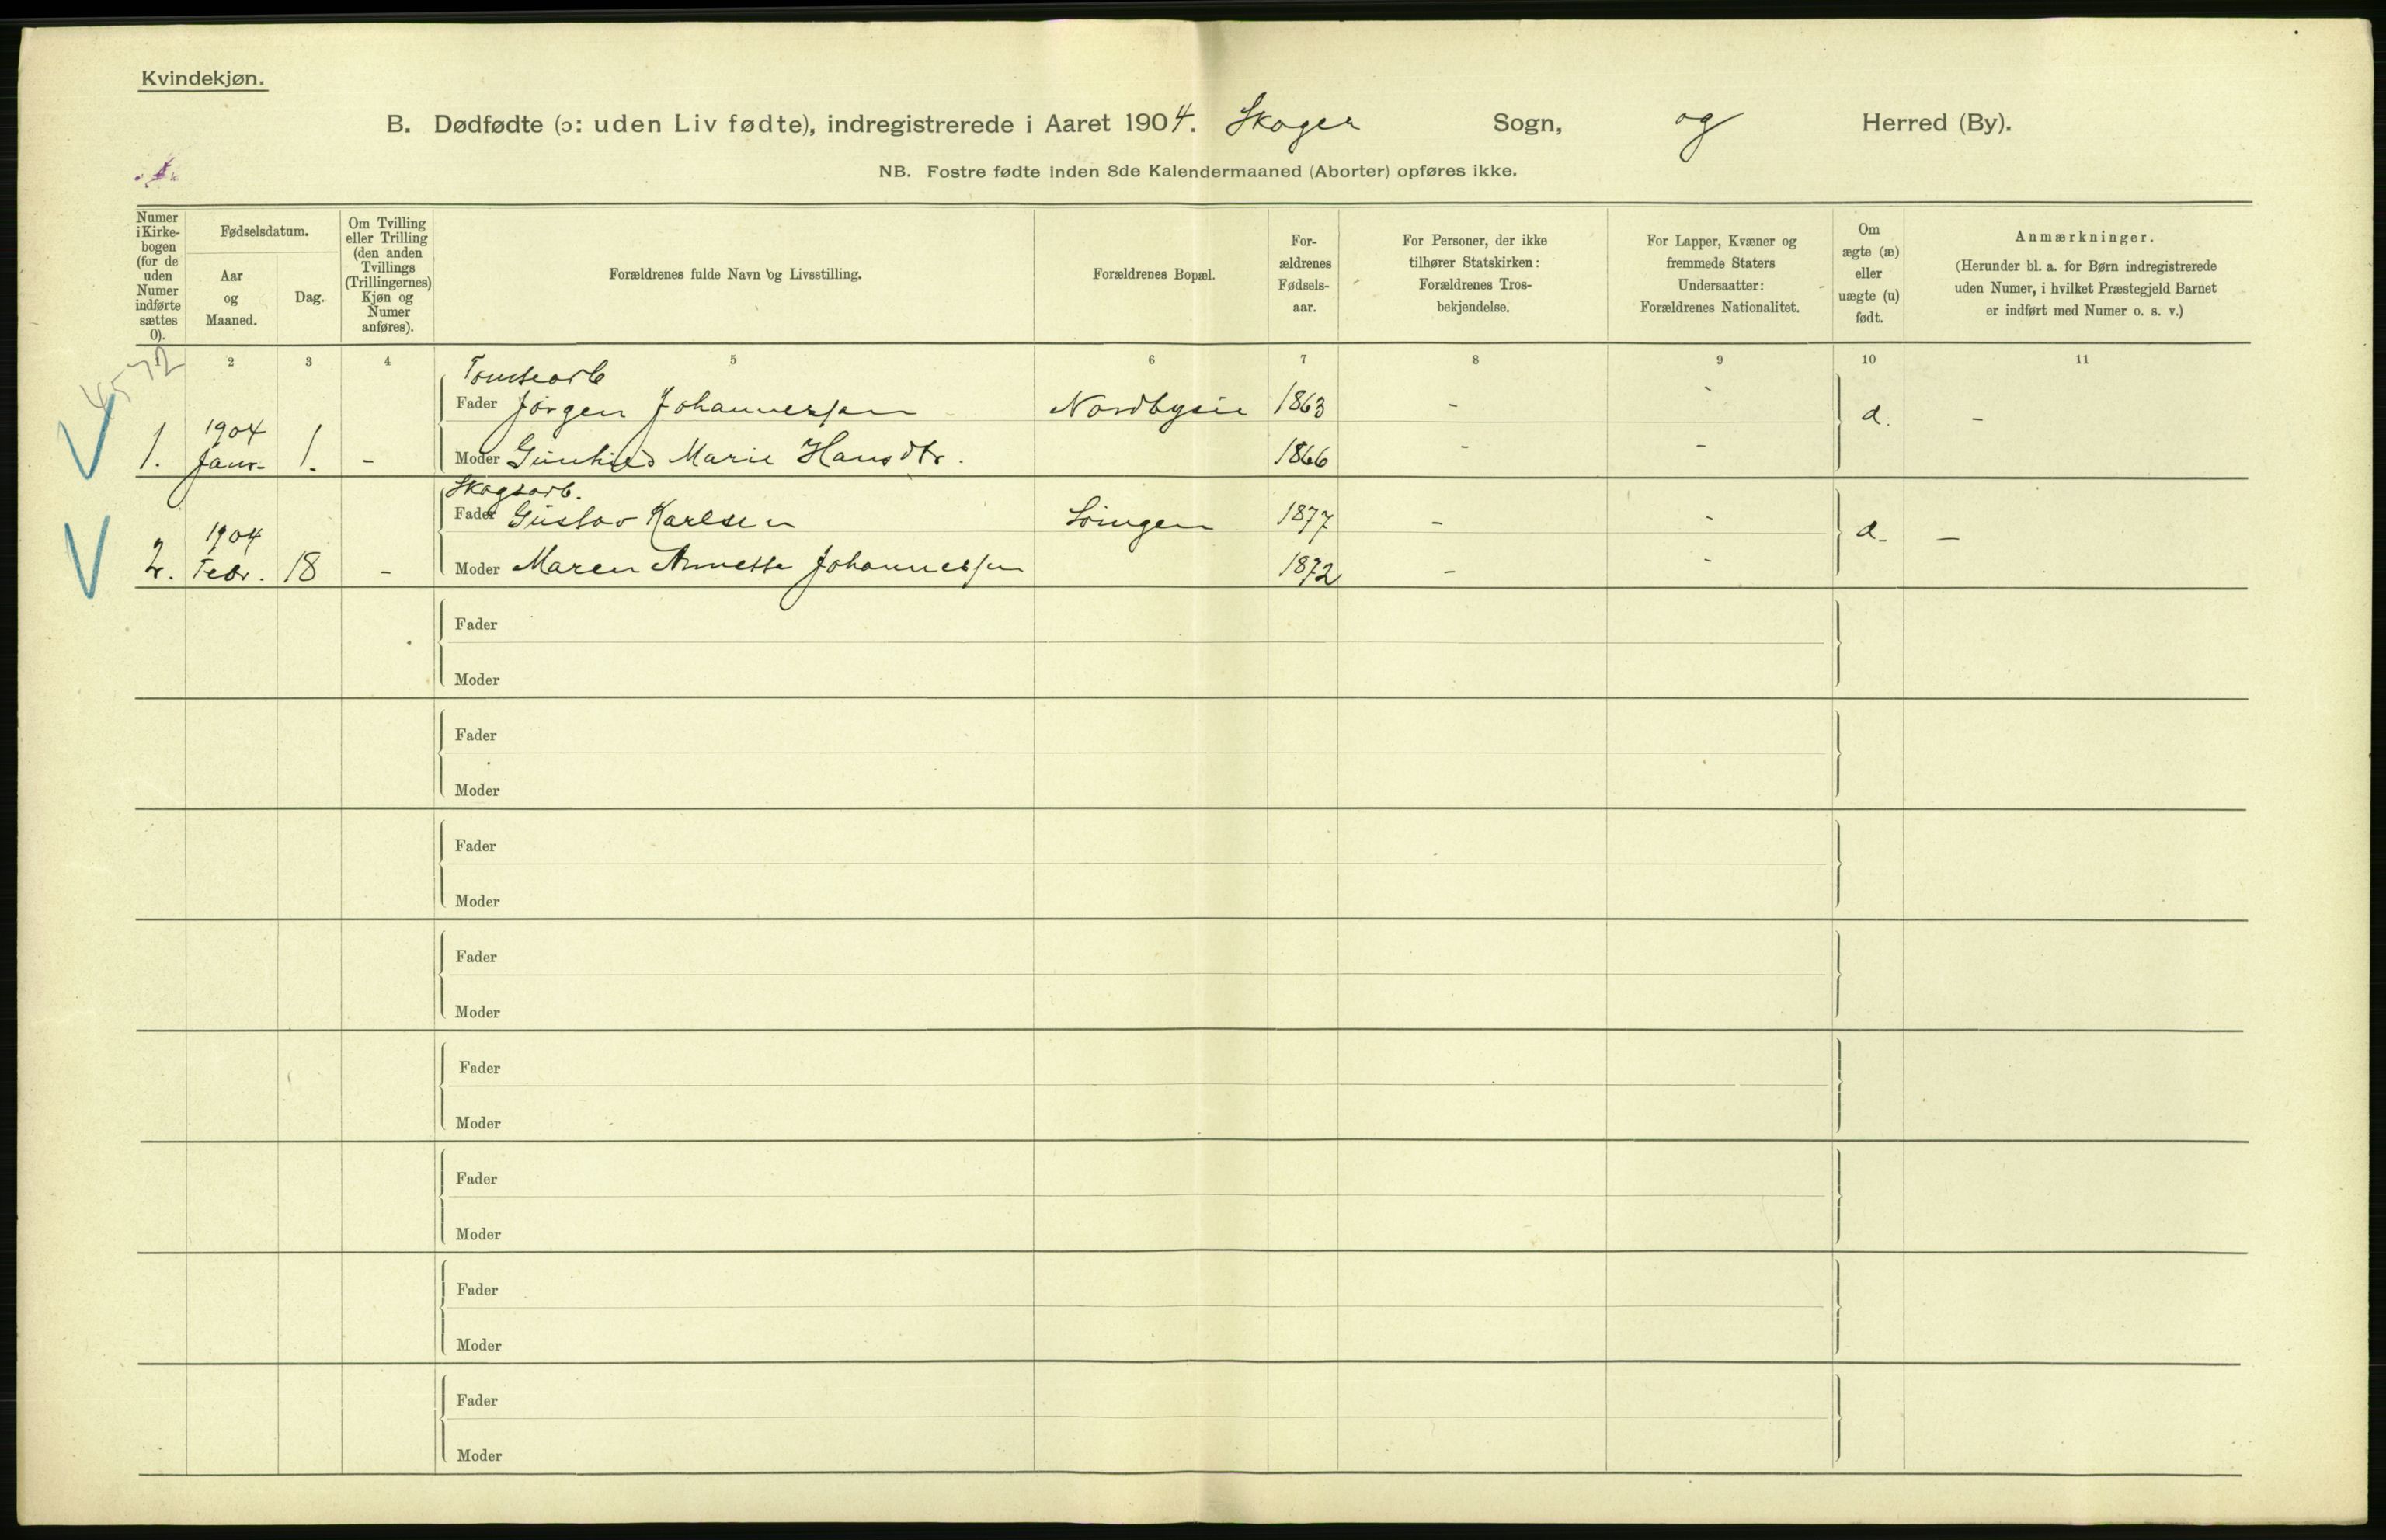 Kvindekjøn.
B. Dødfødte (ɔ: uden Liv fødte), indregistrerede i Aaret 1904. Skoger Sogn, og Herred (By).
NB. Fostre fødte inden 8de Kalendermaaned (Aborter) opføres ikke.
Numer i Kirke-bogen (for de uden Numer indførte sættes 0).
Fødselsdatum.
Aar og Maaned.
Dag.
Om Tvilling eller Trilling (den anden Tvillings (Trillingernes) Kjøn og Numer anføres).
Forældrenes fulde Navn og Livsstilling.
Forældrenes Bopæl.
For-ældrenes Fødsels-aar.
For Personer, der ikke tilhører Statskirken: Forældrenes Tros-bekjendelse.
For Lapper, Kvæner og fremmede Staters Undersaatter: Forældrenes Nationalitet.
Om ægte (æ) eller uægte (u) født.
Anmærkninger.
(Herunder bl. a. for Børn indregistrerede uden Numer, i hvilket Præstegjeld Barnet er indført med Numer o. s. v.)
2 3 4 5 6 7 8 9 10 11
4572
Tomtearb
Fader Jørgen Johannessen Nordbyeie 1863 - -
1. 1904 Janr. 1. - Moder Gunhild Marie Hansdtr. 1866 - - æ. -
Skogsarb.
Fader Gustav Karlsen 1877 - -
2. 1904 Febr. 18 - Moder Maren Annette Johannessen 1872 - - æ. -
Fader
Moder
Fader
Moder
Fader
Moder
Fader
Moder
Fader
Moder
Fader
Moder
Fader
Moder
Fader
Moder